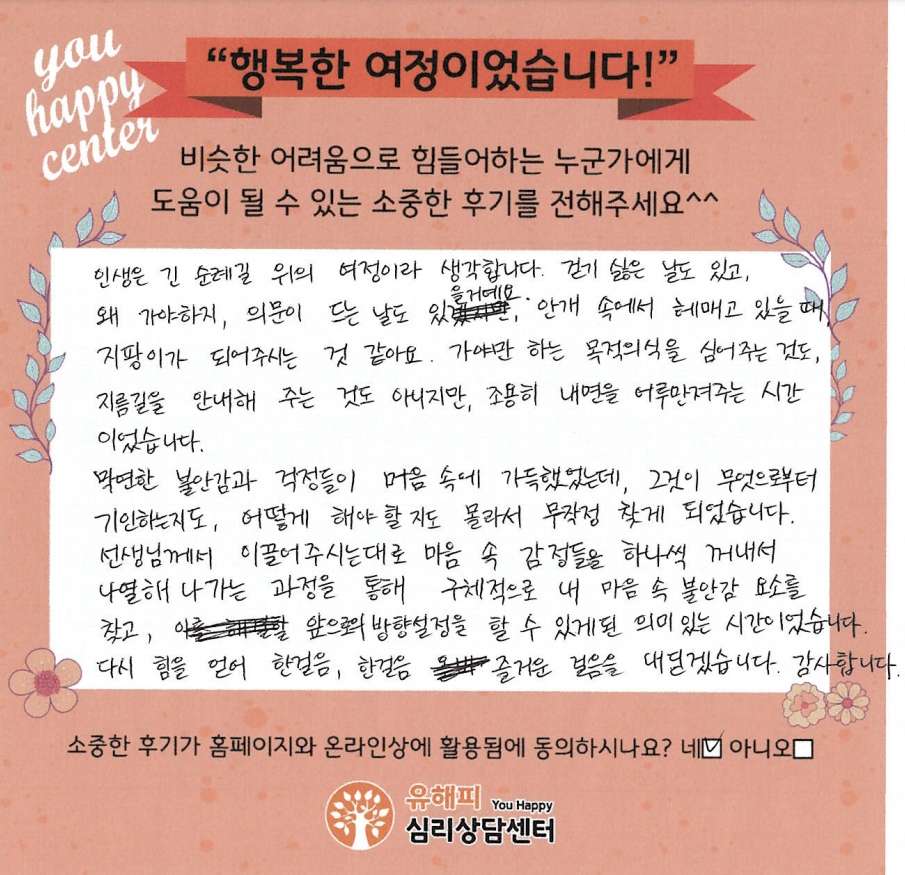 you
happy
center
“행복한 여정이었습니다!”
비슷한 어려움으로 힘들어하는 누군가에게
도움이 될 수 있는 소중한 후기를 전해주세요^^
인생은 긴 순례길 위의 여정이라 생각합니다. 걷기 싫은 날도 있고,
왜 가야하지, 의문이 드는 날도 있을거예요. 안개 속에서 헤매고 있을 때,
지팡이가 되어주시는 것 같아요. 가야만 하는 목적의식을 심어주는 것도,
지름길을 안내해 주는 것도 아니지만, 조용히 내면을 어루만져주는 시간
이었습니다.
막연한 불안감과 걱정들이 마음 속에 가득했었는데, 그것이 무엇으로부터
기인하는지도, 어떻게 해야 할 지도 몰라서 무작정 찾게 되었습니다.
선생님께서 이끌어주시는대로 마음 속 감정들을 하나씩 꺼내서
나열해 나가는 과정을 통해 구체적으로 내 마음 속 불안감 요소를
찾고, 앞으로의 방향설정을 할 수 있게된 의미있는 시간이었습니다.
다시 힘을 얻어 한걸음, 한걸음 즐거운 걸음을 내딛겠습니다. 감사합니다.
소중한 후기가 홈페이지와 온라인상에 활용됨에 동의하시나요? 네☑ 아니오☐
유해피 You Happy
심리상담센터